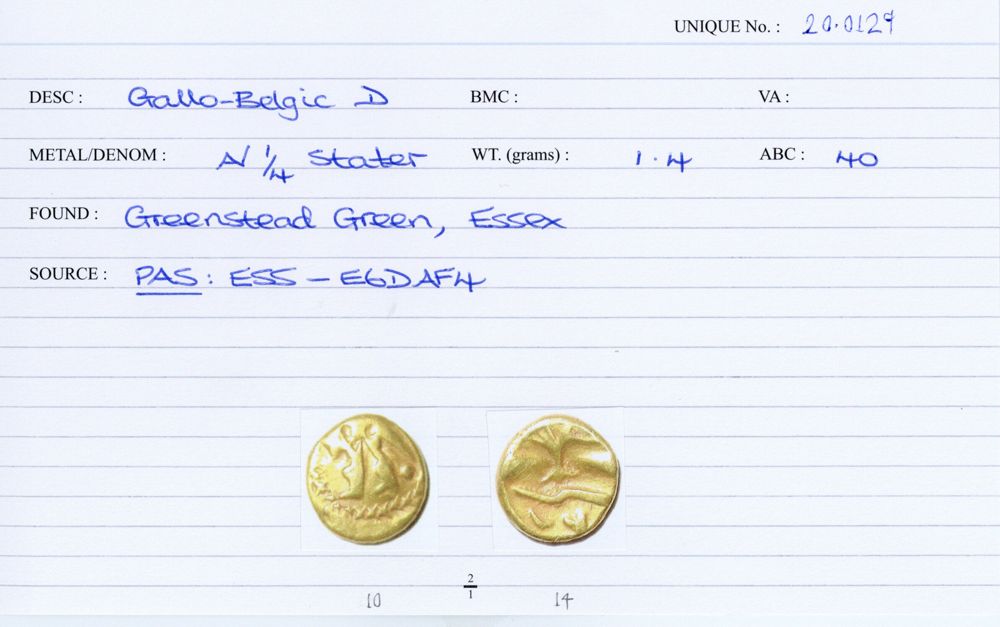 UNIQUE No. : 20.0129
DESC : Gallo-Belgic D BMC : VA :
METAL/DENOM : A/ 1/4 Stater WT. (grams) : 1.4 ABC : 40
FOUND : Greenstead Green, Essex
SOURCE : PAS: ESS - E6DAF4
2/1
10 14